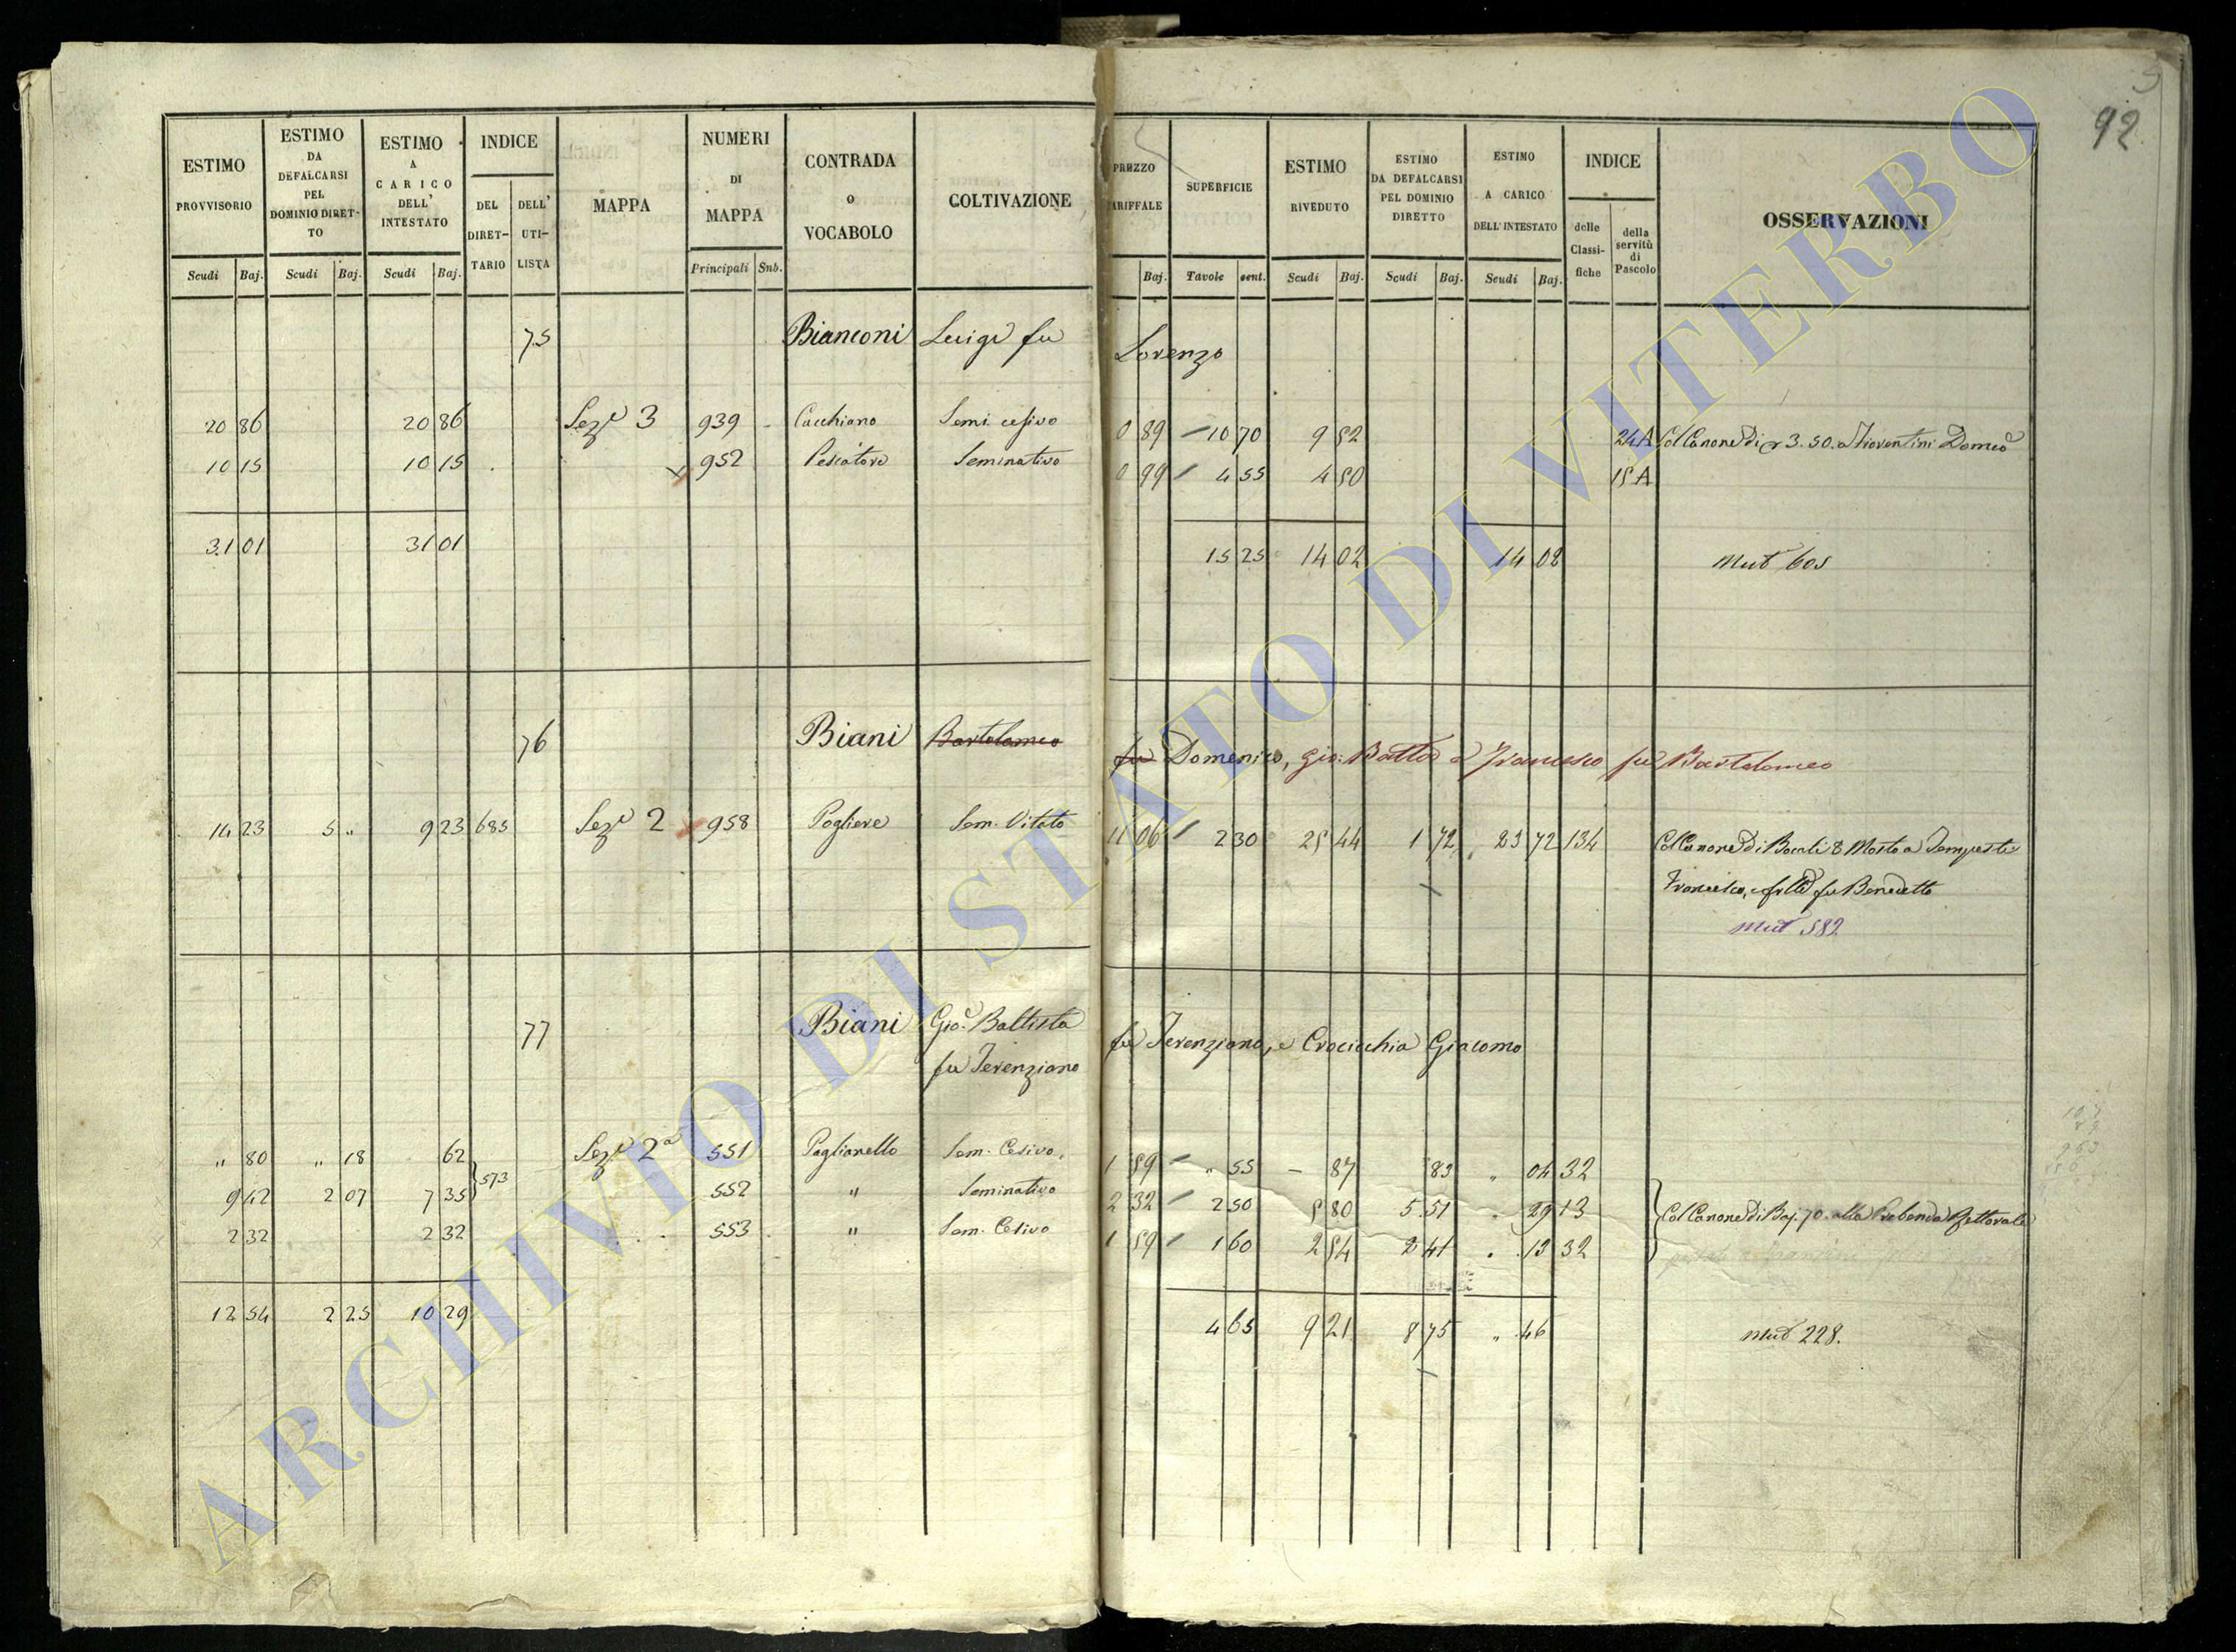 92
ESTIMO PROVVISORIO
ESTIMO DA DEFALCARSI PEL DOMINIO DIRET-TO
ESTIMO A CARICO DELL' INTESTATO
INDICE
DEL DIRET-TARIO
DELL' UTI-LISTA
MAPPA
NUMERI DI MAPPA
CONTRADA o VOCABOLO
COLTIVAZIONE
PREZZO TARIFFALE
SUPERFICIE
ESTIMO RIVEDUTO
ESTIMO DA DEFALCARSI PEL DOMINIO DIRETTO
ESTIMO A CARICO DELL' INTESTATO
INDICE
delle Classi-fiche
della servitù di Pascolo
OSSERVAZIONI
Scudi Baj. Scudi Baj. Scudi Baj. Principali Sub. Baj. Tavole cent. Scudi Baj. Scudi Baj. Scudi Baj.
75 Bianconi Luigi fu Lorenzo
20 86 20 86 Sez.e 3 939 - Cacchiano Semi. cesivo 0 89 10 70 9 52 24 A Col Canone di 3.50. a Fioventini Domco
10 15 10 15 952 Pescatore Seminativo 0 99 4 55 4 50 15 A
31 01 31 01 15 25 14 02 14 02 Mut 605
76 Biani Bartolomeo fu Domenico, Gio: Batta e Francesco fu Bartolomeo
14 23 5 " 9 23 685 Sez.e 2 958 Pogliere Sem. Vitato 11 06 2 30 25 44 1 72 23 72 134 Col Canone di Bocali 8 Mosto a Tempesti
Francesco, e flli fu Benedetto
Mut 582
77 Biani Gio. Battista fu Terenziano, e Crocicchia Giacomo
fu Terenziano
" 80 " 18 62 573 Sez.e 2a 551 Poglianello Sem. Cesivo, 1 59 " 55 - 87 83 " 04 32
9 42 2 07 7 35 552 " Seminativo 2 32 2 50 5 80 5.51 29 13 Col Canone di Baj. 70. alla Prebenda Rettorale
2 32 2 32 553 " Sem. Cesivo 1 59 1 60 2 54 2 41 13 32
12 54 2 25 10 29 4 65 9 21 8 75 " 46 Mut 228.
ARCHIVIO DI STATO DI VITERBO